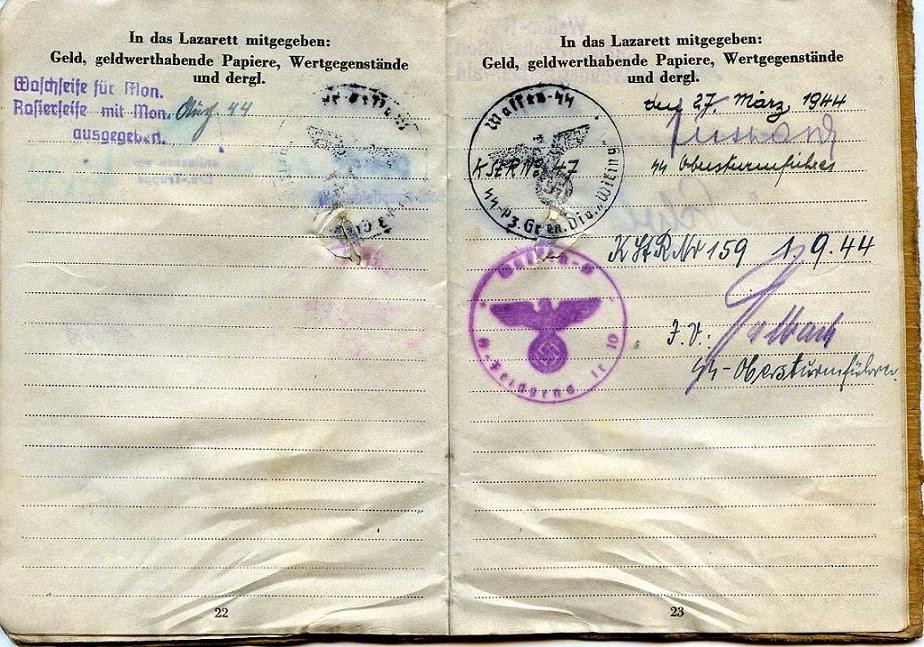 In das Lazarett mitgegeben:
Geld, geldwerthabende Papiere, Wertgegenstände
und dergl.
Waschseife für Mon.
Rasierseife mit Mon. Aug. 44
ausgegeben.
22
In das Lazarett mitgegeben:
Geld, geldwerthabende Papiere, Wertgegenstände
und dergl.
den 27. März 1944
Waffen-SS
KStRNr. 47
SS-Pz. Gren. Div. „Wiking"
SS Obersturmführer
KStRNr 159 1.9.44
Waffen-SS
I.V.:
SS-Obersturmführer
23